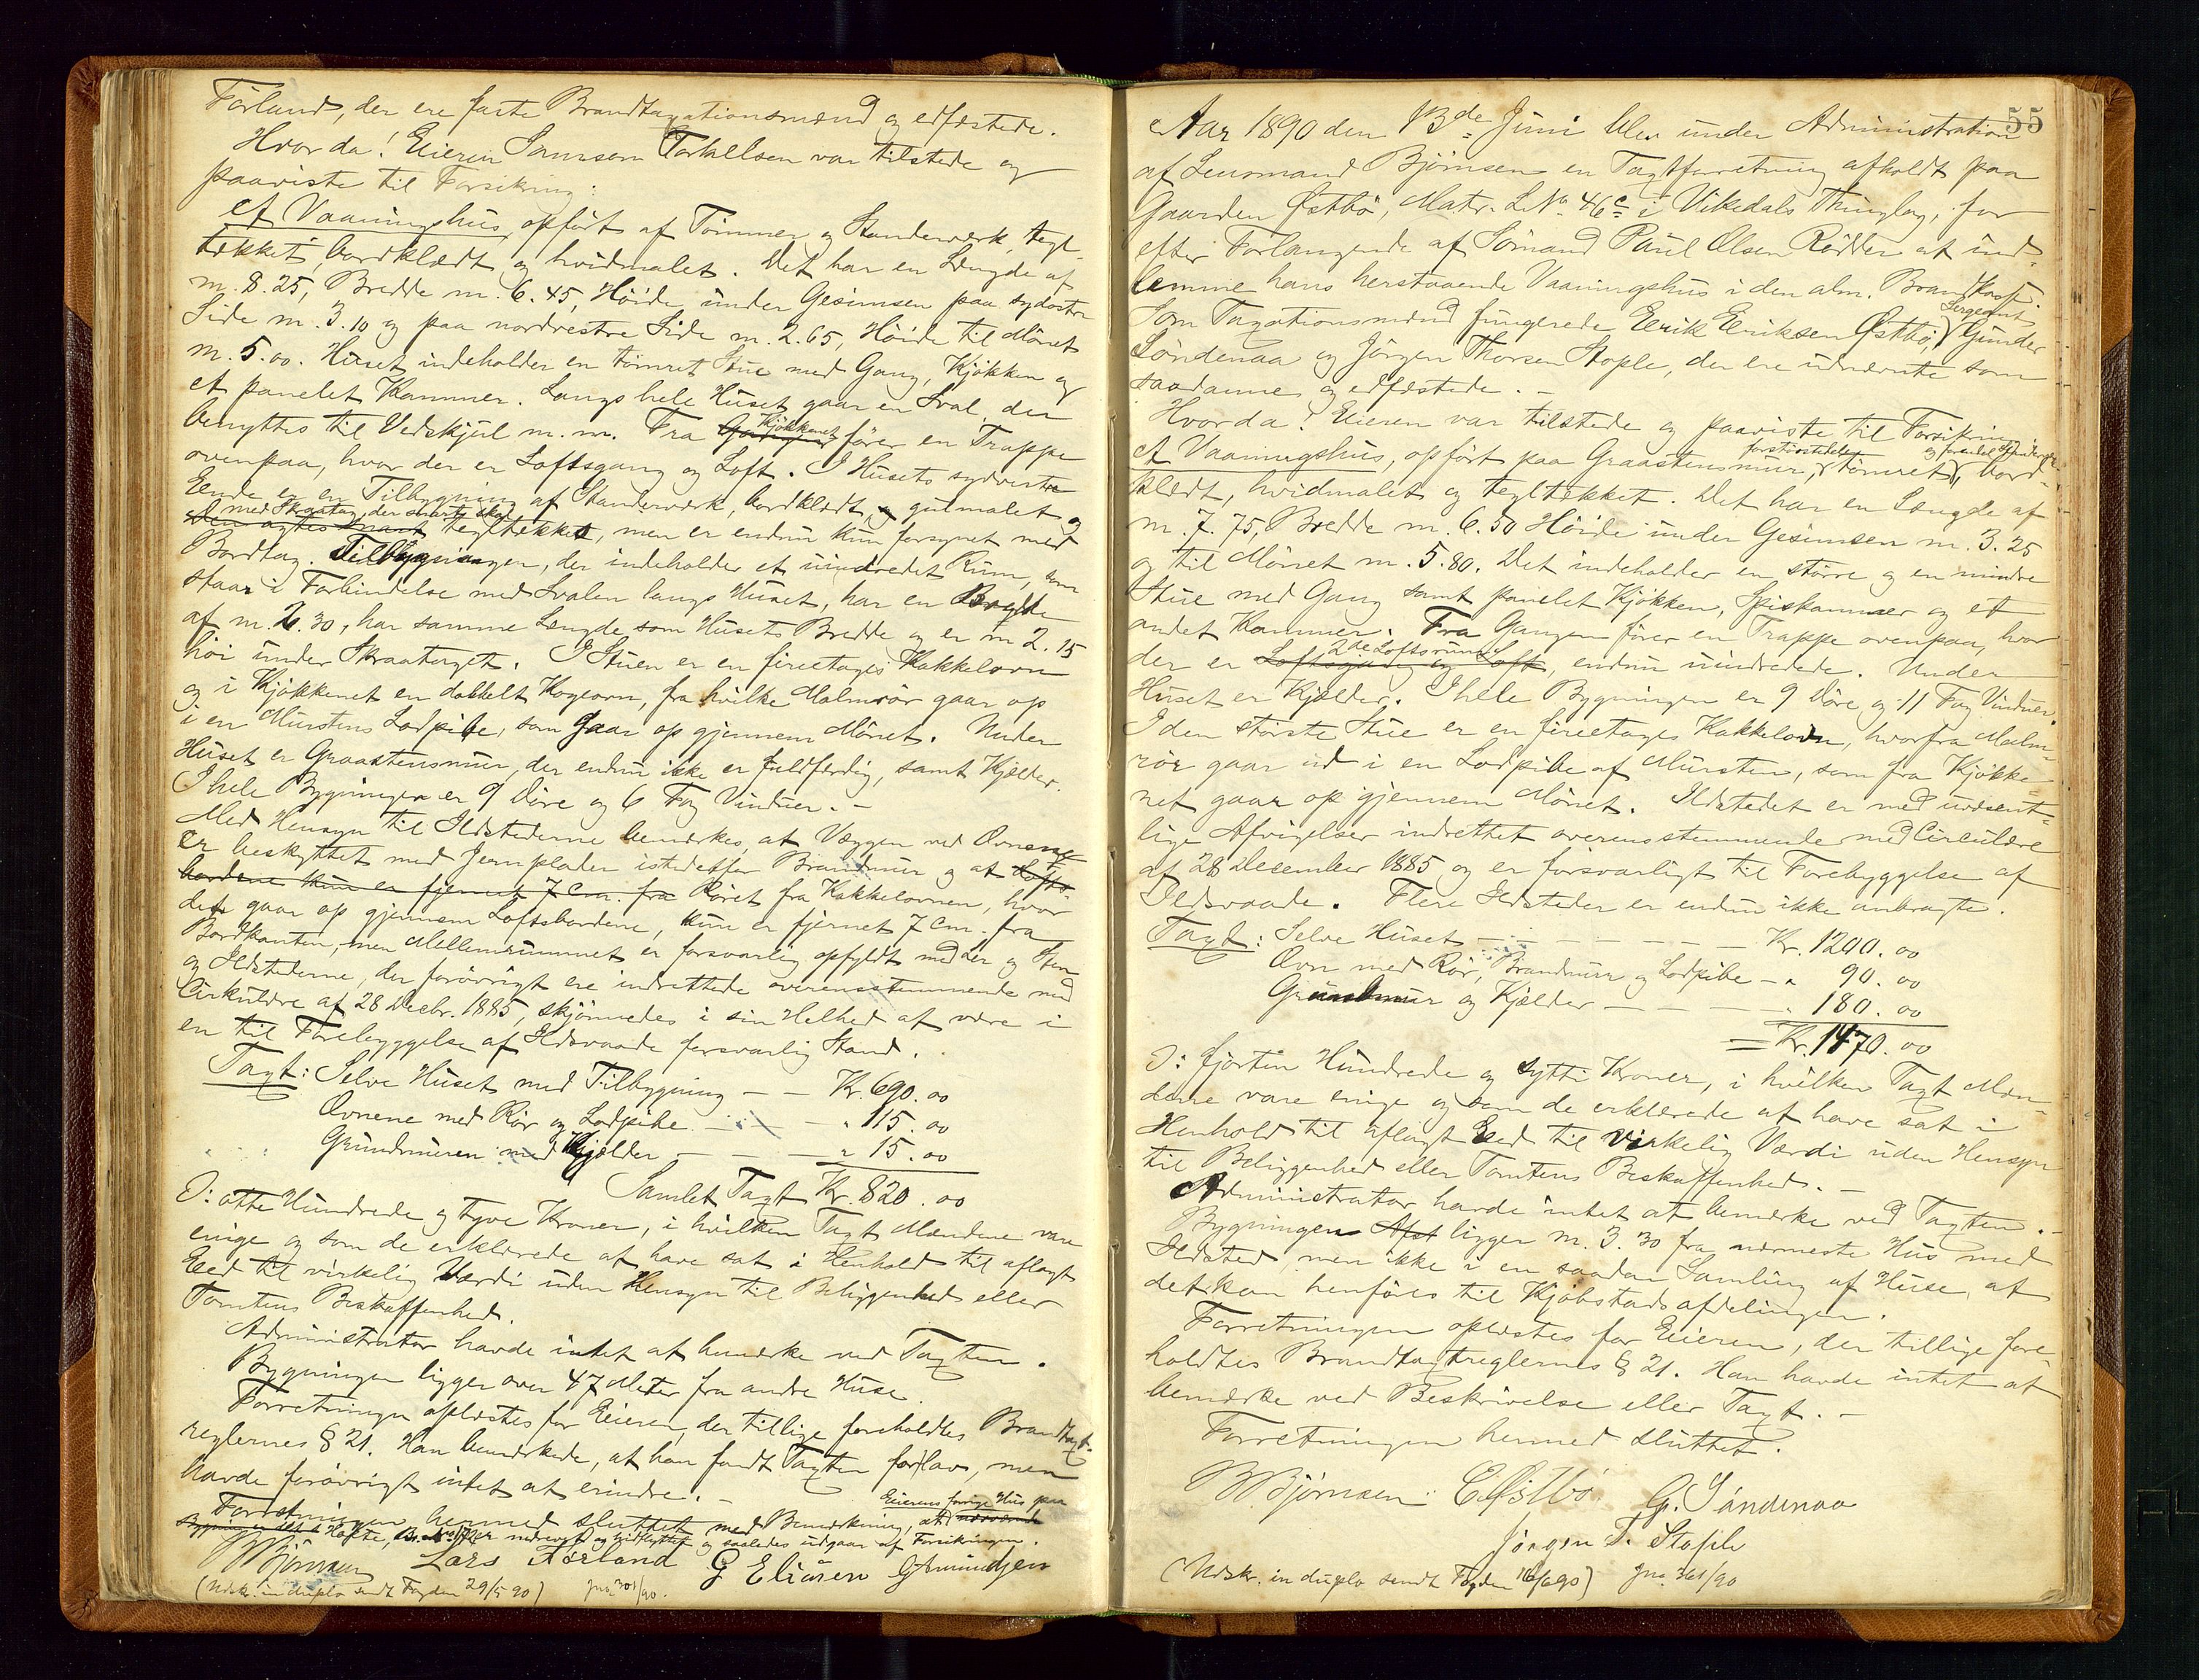 Förland, der ere faste Brandtaxationsmænd og edfæstede.
Hvorda! Eieren Samson Torkellsen var tilstede og
paaviste til Forsikring:
et Vaaningshus, opført af Tømmer og Standerværk, tegl-
tækket, bordklædt og hvidmalet. Det har en Længde af
m. 8.25, Bredde m. 6.45, Høide under Gesimsen paa sydøstre
Side m. 3.10 og paa nordvestre Side m. 2.65, Høide til Mønet
m. 5.00. Huset indeholder en tømret Stue med Gang, Kjøkken og
et panelet Kammer. Langs hele Huset gaar en Sval, der
benyttes til Vedskjul m. m. Fra Gangen Kjøkkenet fører en Trappe
ovenpaa, hvor der er Loftsgang og Loft. I Husets sydvestre
Ende er en Tilbygning af Standerværk, bordklædt og gulmalet og
med Skraatag, der snarts skal
den agtes snart tegltækket, men er endnu kun forsynet med
Bordtag. Tilbygningen, der indeholder et uindredet Rum, som
staar i Forbindelse med Svalen langs Huset, har en Bredde
af m. 2.30, har samme Længde som Husets Bredde og er m 2.15
høi under Skraataget. I Stuen er en fireetages Kakkelovn
og i Kjøkkenet en dobbelt Kogeovn, fra hvilke Malmrør gaar op
i en Murstens Lodpibe, som gaar op gjennem Mønet. Under
Huset er Graastensmur, der endnu ikke er fuldfærdig, samt Kjælder.
I hele Bygningen er 9 Døre og 6 Fag Vinduer. –
Med Hensyn til Ildstederne bemærkes, at Væggen ved Ovnene
er beskyttet med Jernplader istedetfor Brandmur og at Lofts-
bordene kun er fjernet 7 Cm. fra Røret fra Kakkelovnen, hvor
det gaar op gjennem Loftsbordene, kun er fjernet 7 Cm. fra
Bordkanten, men Mellemrummet er forsvarlig opfyldt med Ler og Sten
og Ildstederne, der forøvrigt ere indrettede overensstemmende med
Cirkulære af 28 Decbr. 1885, skjønnedes i sin Helhed at være i
en til Forebyggelse af Ildsvaade forsvarlig Stand.
Taxt: Selve Huset med Tilbygning — — Kr. 690.00
Ovnene med Rør og Lodpibe — — " 115.00
Grundmuren med Kjælder — — — " 15.00
Samlet Taxt Kr. 820.00
O: otte Hundrede og tyve Kroner, i hvilken Taxt Mændene vare
enige og som de erklærede at have sat i Henhold til aflagt
Eed til virkelig Værdi uden Hensyn til Beliggenhed eller
Tomtens Beskaffenhed.
Administrator havde intet at bemærke ved Taxten.
Bygningen ligger over 47 Meter fra andre Huse.
Forretningen oplæstes for Eieren, der tillige foreholdtes Brandtaxt-
reglernes § 21. Han bemærkede, at han fandt Taxten for lav, men
havde forøvrigt intet at erindre. –
Forretningen hermed sluttet med Bemærkning, at Eierens forrige Hus paa
nedrevet og bortflyttet og saaledes udgaar af Forsikringen.
BBjørnsen Lars Førland G Eliasen G Amundsen
(Udskr. in duplo sendt Fogden 29/5 90) jno. 301/90.
55
Aar 1890 den 13de Juni blev under Administration
af Lensmand Bjørnsen en Taxtforretning afholdt paa
Gaarden Østbø, Matr. L.No. 46c i Vikedals Thinglag, for
efter Forlangende af Sømand Paul Olsen Rødder at ind-
lemme hans herstaaende Vaaningshus i den alm. Brandkasse.
Som Taxationsmænd fungerede Eerik Eeriksen Østbø, Sergeant Gunder
Søndenaa og Jørgen Thorsen Stople, der ere udnævnte som
saadanne og edfæstede. –
Hvorda! Eieren var tilstede og paaviste til Forsikring:
et Vaaningshus, opført paa Graastensmur, forstørstedelen tømret, og forøvrigt Standerværk, bord-
klædt, hvidmalet og tegltækket. Det har en Længde af
m. 7.75, Bredde m. 6.50 Høide under Gesimsen m. 3.25
og til Mønet m. 5.80. Det indeholder en større og en mindre
Stue med Gang samt panelet Kjøkken, Spiskammer og et
andet Kammer. Fra Gangen fører en Trappe ovenpaa, hvor
der er Loftsgang og Loft 2de Loftsrum, endnu uindredede. Under
Huset er Kjælder. I hele Bygningen er 9 Døre og 11 Fag Vinduer.
I den største Stue er en fireetages Kakkelovn, hvorfra Malm-
rør gaar ud i en Lodpibe af Mursten, som fra Kjøkke-
net gaar op gjennem Mønet. Ildstedet er med uvæsent-
lige Afvigelser indrettet overensstemmende med Circulære
af 28 December 1885 og er forsvarligt til Forebyggelse af
Ildsvaade. Flere Ildsteder er endnu ikke anbragte.
Taxt: Selve Huset — — — — — — — Kr. 1200.00
Ovn med Rør, Brandmur og Lodpibe — " 90.00
Grundmur og Kjælder — — — — " 180.00
= Kr. 1470.00
O: fjorten Hundrede og sytti Kroner, i hvilken Taxt Mæn-
dene vare enige og som de erklærede at have sat i
Henhold til aflagt Eed til virkelig Værdi uden Hensyn
til Beliggenhed eller Tomtens Beskaffenhed. –
Administrator havde intet at bemærke ved Taxten. –
Bygningen Afst ligger m. 3.30 fra nærmeste Hus med
Ildsted, men ikke i en saadan Samling af Huse, at
det kan henføres til Kjøbstadsafdelingen.
Forretningen oplæstes for Eieren, der tillige fore-
holdtes Brandtaxtreglernes § 21. Han havde intet at
bemærke ved Beskrivelse eller Taxt. –
Forretningen hermed sluttet.
BBjørnsen E. Østbø G. Søndenaa
Jørgen T. Stople
(Udskr. in duplo sendt Fogden 16/6 90) jno. 361/90